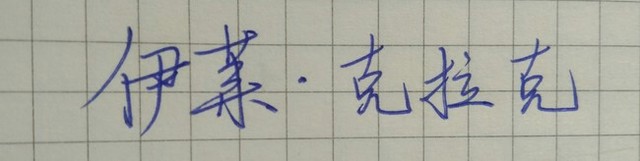 伊莱·克拉克